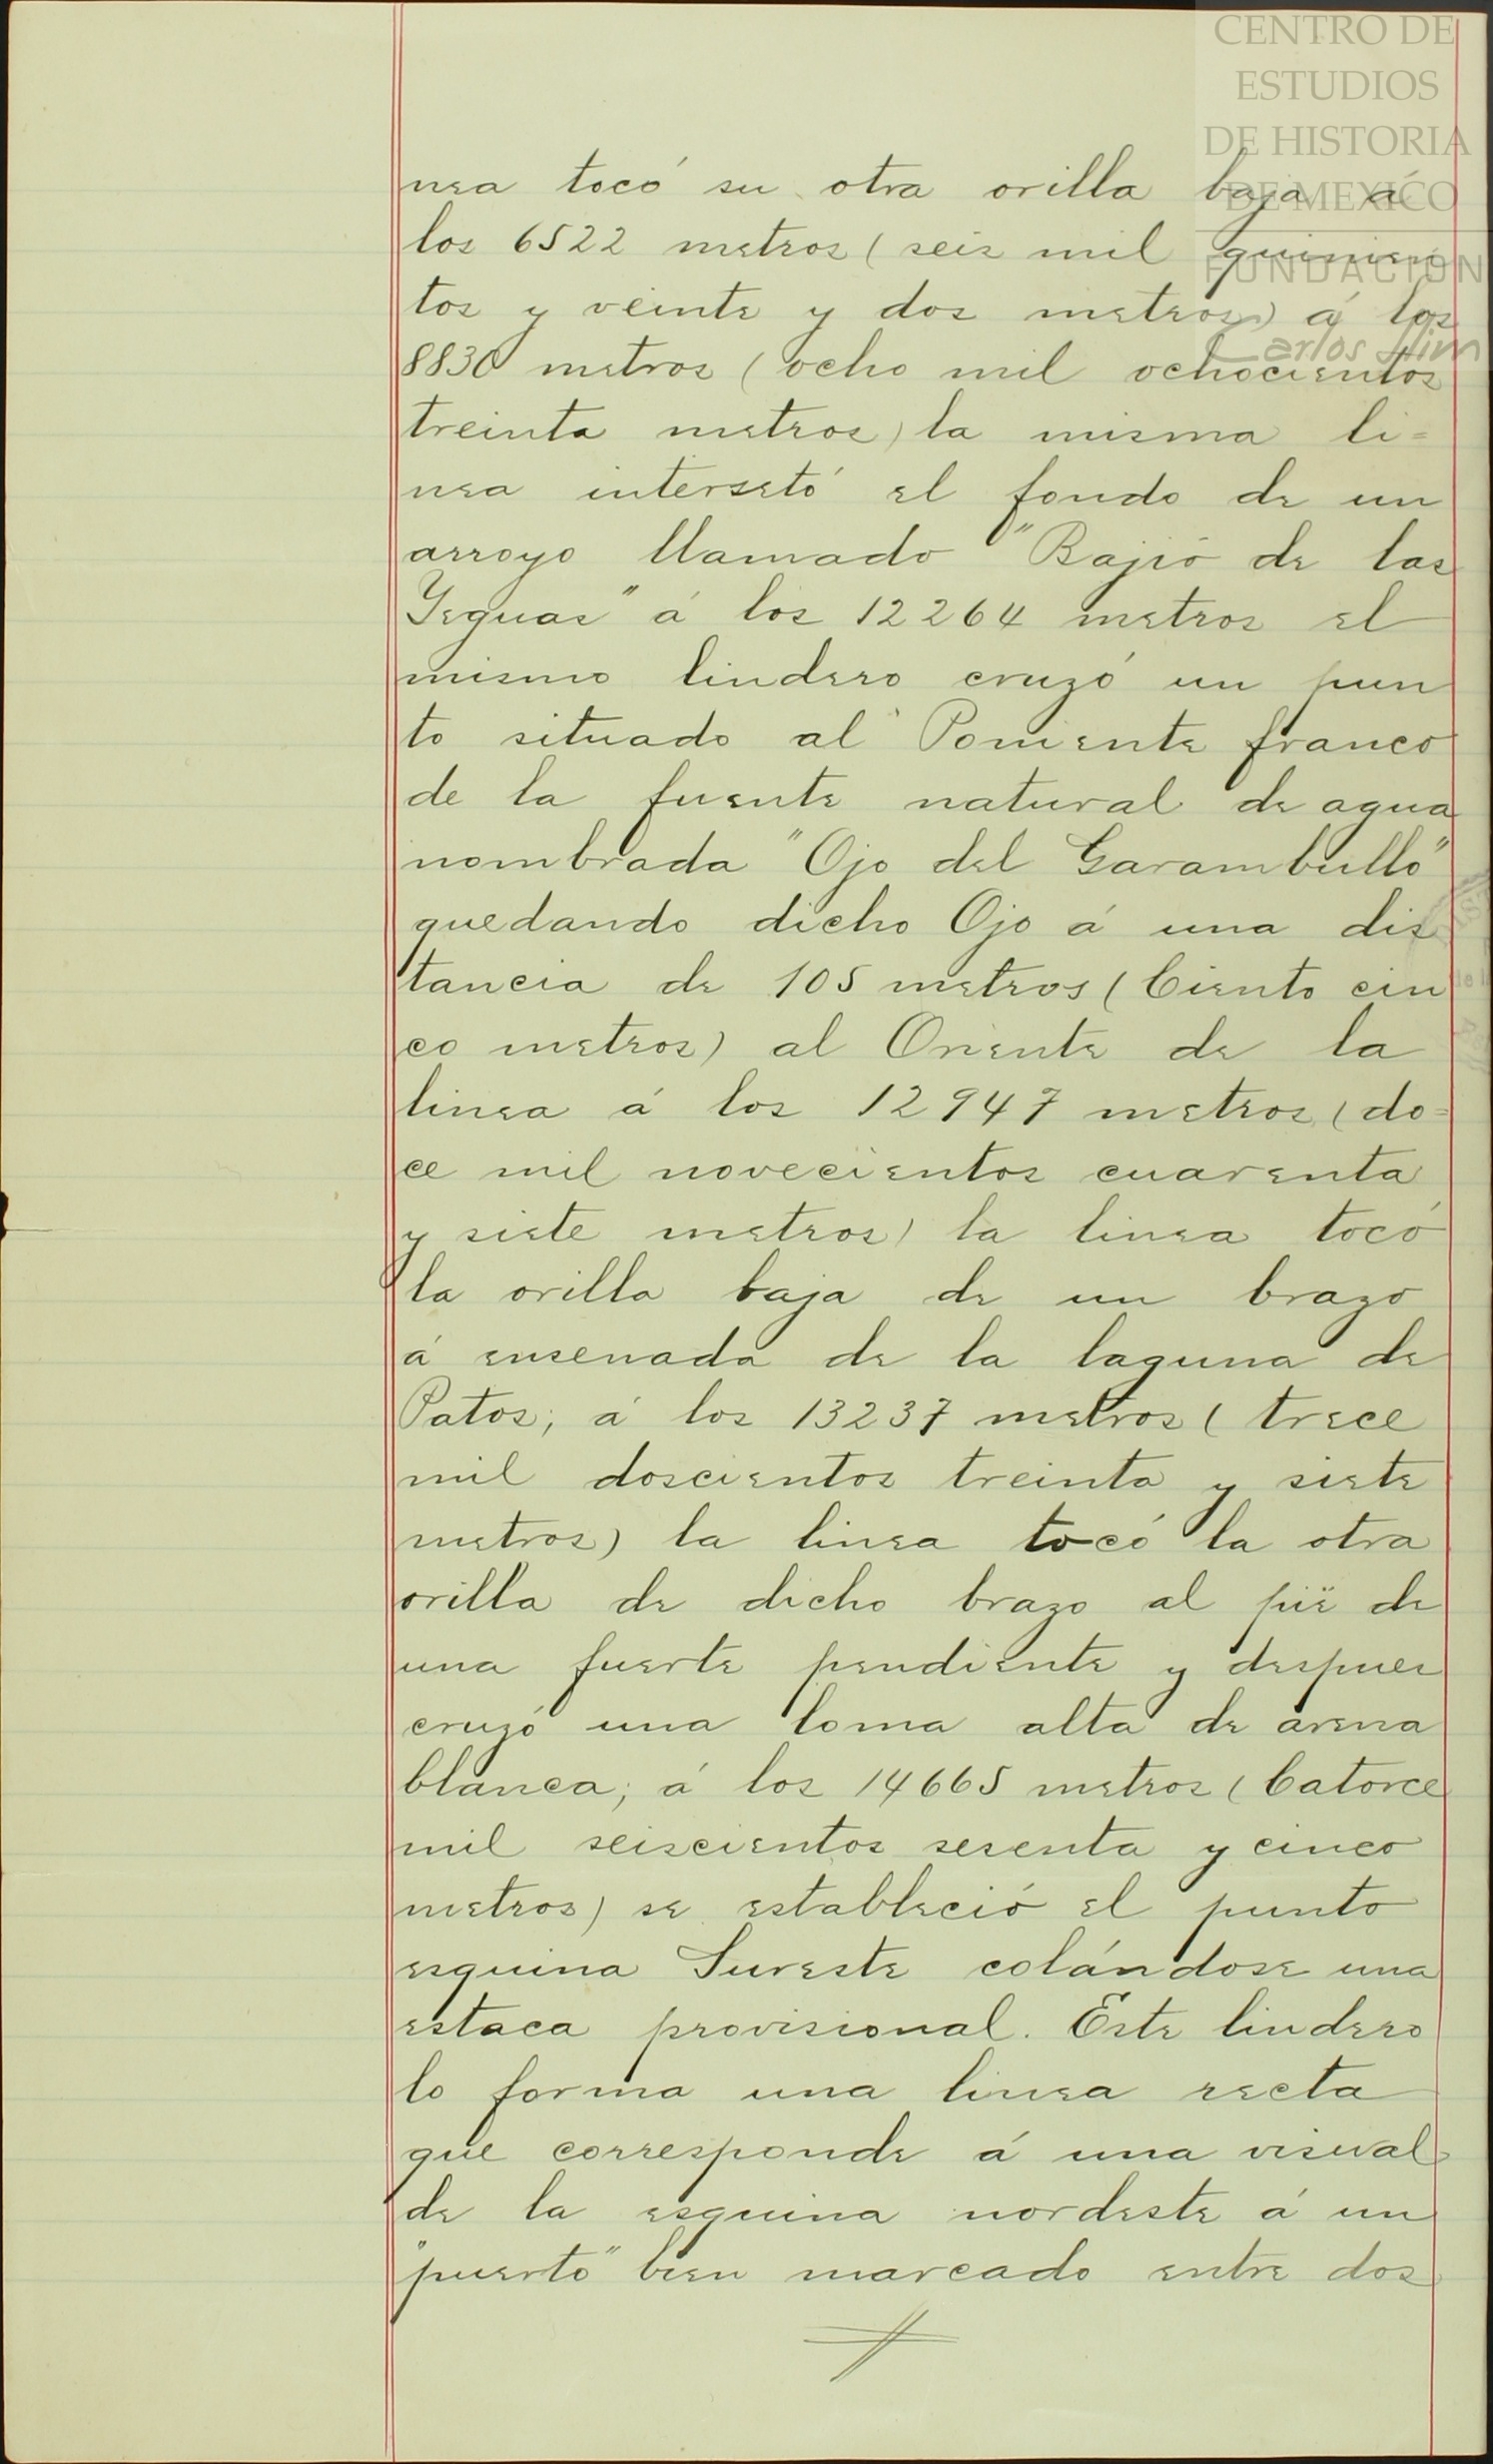 CENTRO DE
ESTUDIOS
DE HISTORIA
DE MEXICO
FUNDACIÓN
Carlos Slim
nea tocó su otra orilla baja á
los 6522 metros (seis mil quinien
tos y veinte y dos metros) á los
8830 metros (ocho mil ochocientos
treinta metros) la misma li=
nea intersetó el fondo de un
arroyo llamado "Bajio de las
Yeguas" á los 12264 metros el
mismo lindero cruzó un pun
to situado al Poniente franco
de la fuente natural de agua
nombrada "Ojo del Garambullo"
quedando dicho Ojo á una dis
tancia de 105 metros (Ciento cin
co metros) al Oriente de la
linea á los 12947 metros (do=
ce mil novecientos cuarenta
y siete metros) la linea tocó
la orilla baja de un brazo
á ensenada de la laguna de
Patos; á los 13237 metros (trece
mil doscientos treinta y siete
metros) la linea tocó la otra
orilla de dicho brazo al pié de
una fuerte pendiente y despues
cruzó una loma alta de arena
blanca; á los 14665 metros (Catorce
mil seiscientos sesenta y cinco
metros) se estableció el punto
esquina Sureste colándose una
estaca provisional. Este lindero
lo forma una linea recta
que corresponde á una visual
de la esquina nordeste á un
"puerto" bien marcado entre dos